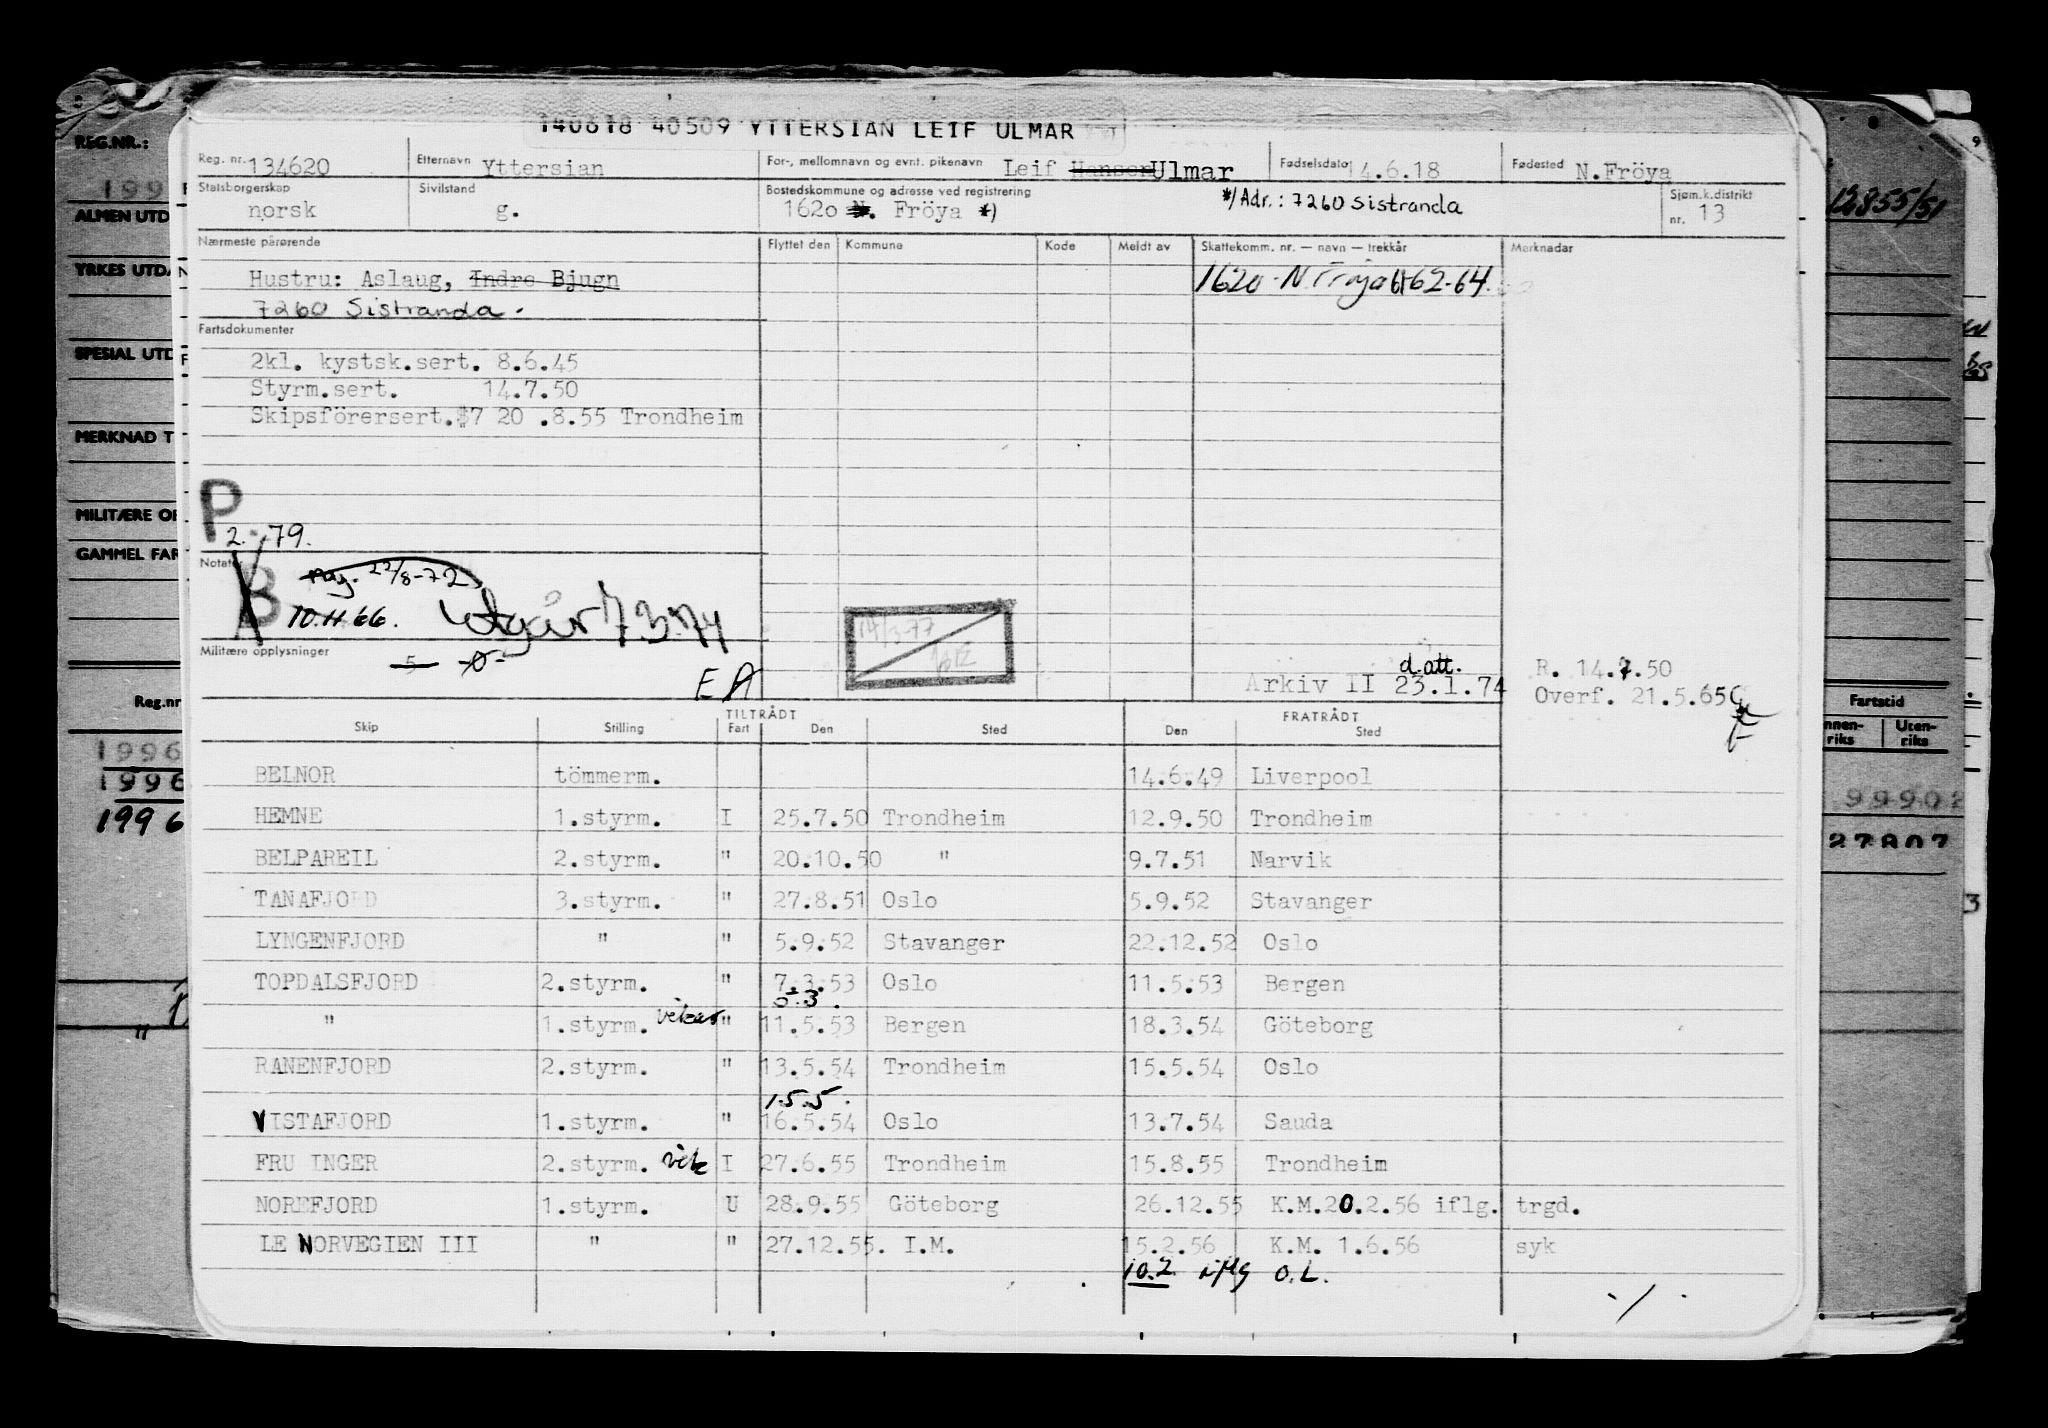 140618 40509 YTTERSIAN LEIF ULMAR
Reg. nr. 134620 Etternavn Yttersian For-, mellomnavn og evnt. pikenavn Leif Hansen Ulmar Fødselsdato 14.6.18 Fødested N.Fröya
Statsborgerskap norsk Sivilstand g. Bostedskommune og adresse ved registrering 1620 N. Fröya *) */Adr.: 7260 Sistranda Sjøm.k.distrikt nr. 13
Nærmeste pårørende Flyttet den Kommune Kode Meldt av Skattekomm. nr. — navn — trekkår Merknadar
Hustru: Aslaug, Indre Bjugn 1620 - N. Frøya 62-64.
7260 Sistranda.
Fartsdokumenter
2kl. kystsk.sert. 8.6.45
Styrm.sert. 14.7.50
Skipsförersert. 20 .8.55 Trondheim
P
2.-79.
Notater
B 22/8-72
10.11.66. utgår 7.3.74
Militære opplysninger
5
EA
14/3-77
d.att.
Arkiv II 23.1.74
R. 14.7.50
Overf. 21.5.65
TILTRÅDT FRATRÅDT
Skip Stilling Fart Den Sted Den Sted
BELNOR tömmerm. 14.6.49 Liverpool
HEMNE 1.styrm. I 25.7.50 Trondheim 12.9.50 Trondheim
BELPAREIL 2.styrm. " 20.10.50 " 9.7.51 Narvik
TANAFJORD 3.styrm. " 27.8.51 Oslo 5.9.52 Stavanger
LYNGENFJORD " " 5.9.52 Stavanger 22.12.52 Oslo
TOPDALSFJORD 2.styrm. " 7.3.53 Oslo 11.5.53 Bergen
5.3.
" 1.styrm. vikar " 11.5.53 Bergen 18.3.54 Göteborg
RANENFJORD 2.styrm. " 13.5.54 Trondheim 15.5.54 Oslo
15.5.
VISTAFJORD 1.styrm. " 16.5.54 Oslo 13.7.54 Sauda
FRU INGER 2.styrm. vik I 27.6.55 Trondheim 15.8.55 Trondheim
NOREFJORD 1.styrm. U 28.9.55 Göteborg 26.12.55 K.M.20.2.56 iflg. trgd.
LE NORVEGIEN III " " 27.12.55. I.M. 15.2.56 K.M. 1.6.56 syk
10.2 iflg O.L.
./.
REG.NR.:
199
ALMEN UTD
YRKES UTDA
SPESIAL UTD
MERKNAD T
MILITÆRE OP
GAMMEL FAR
Reg.nr
1996
1996
1996
"
12855/51
Fartstid
nnen-riks Uten-riks
99902
27807